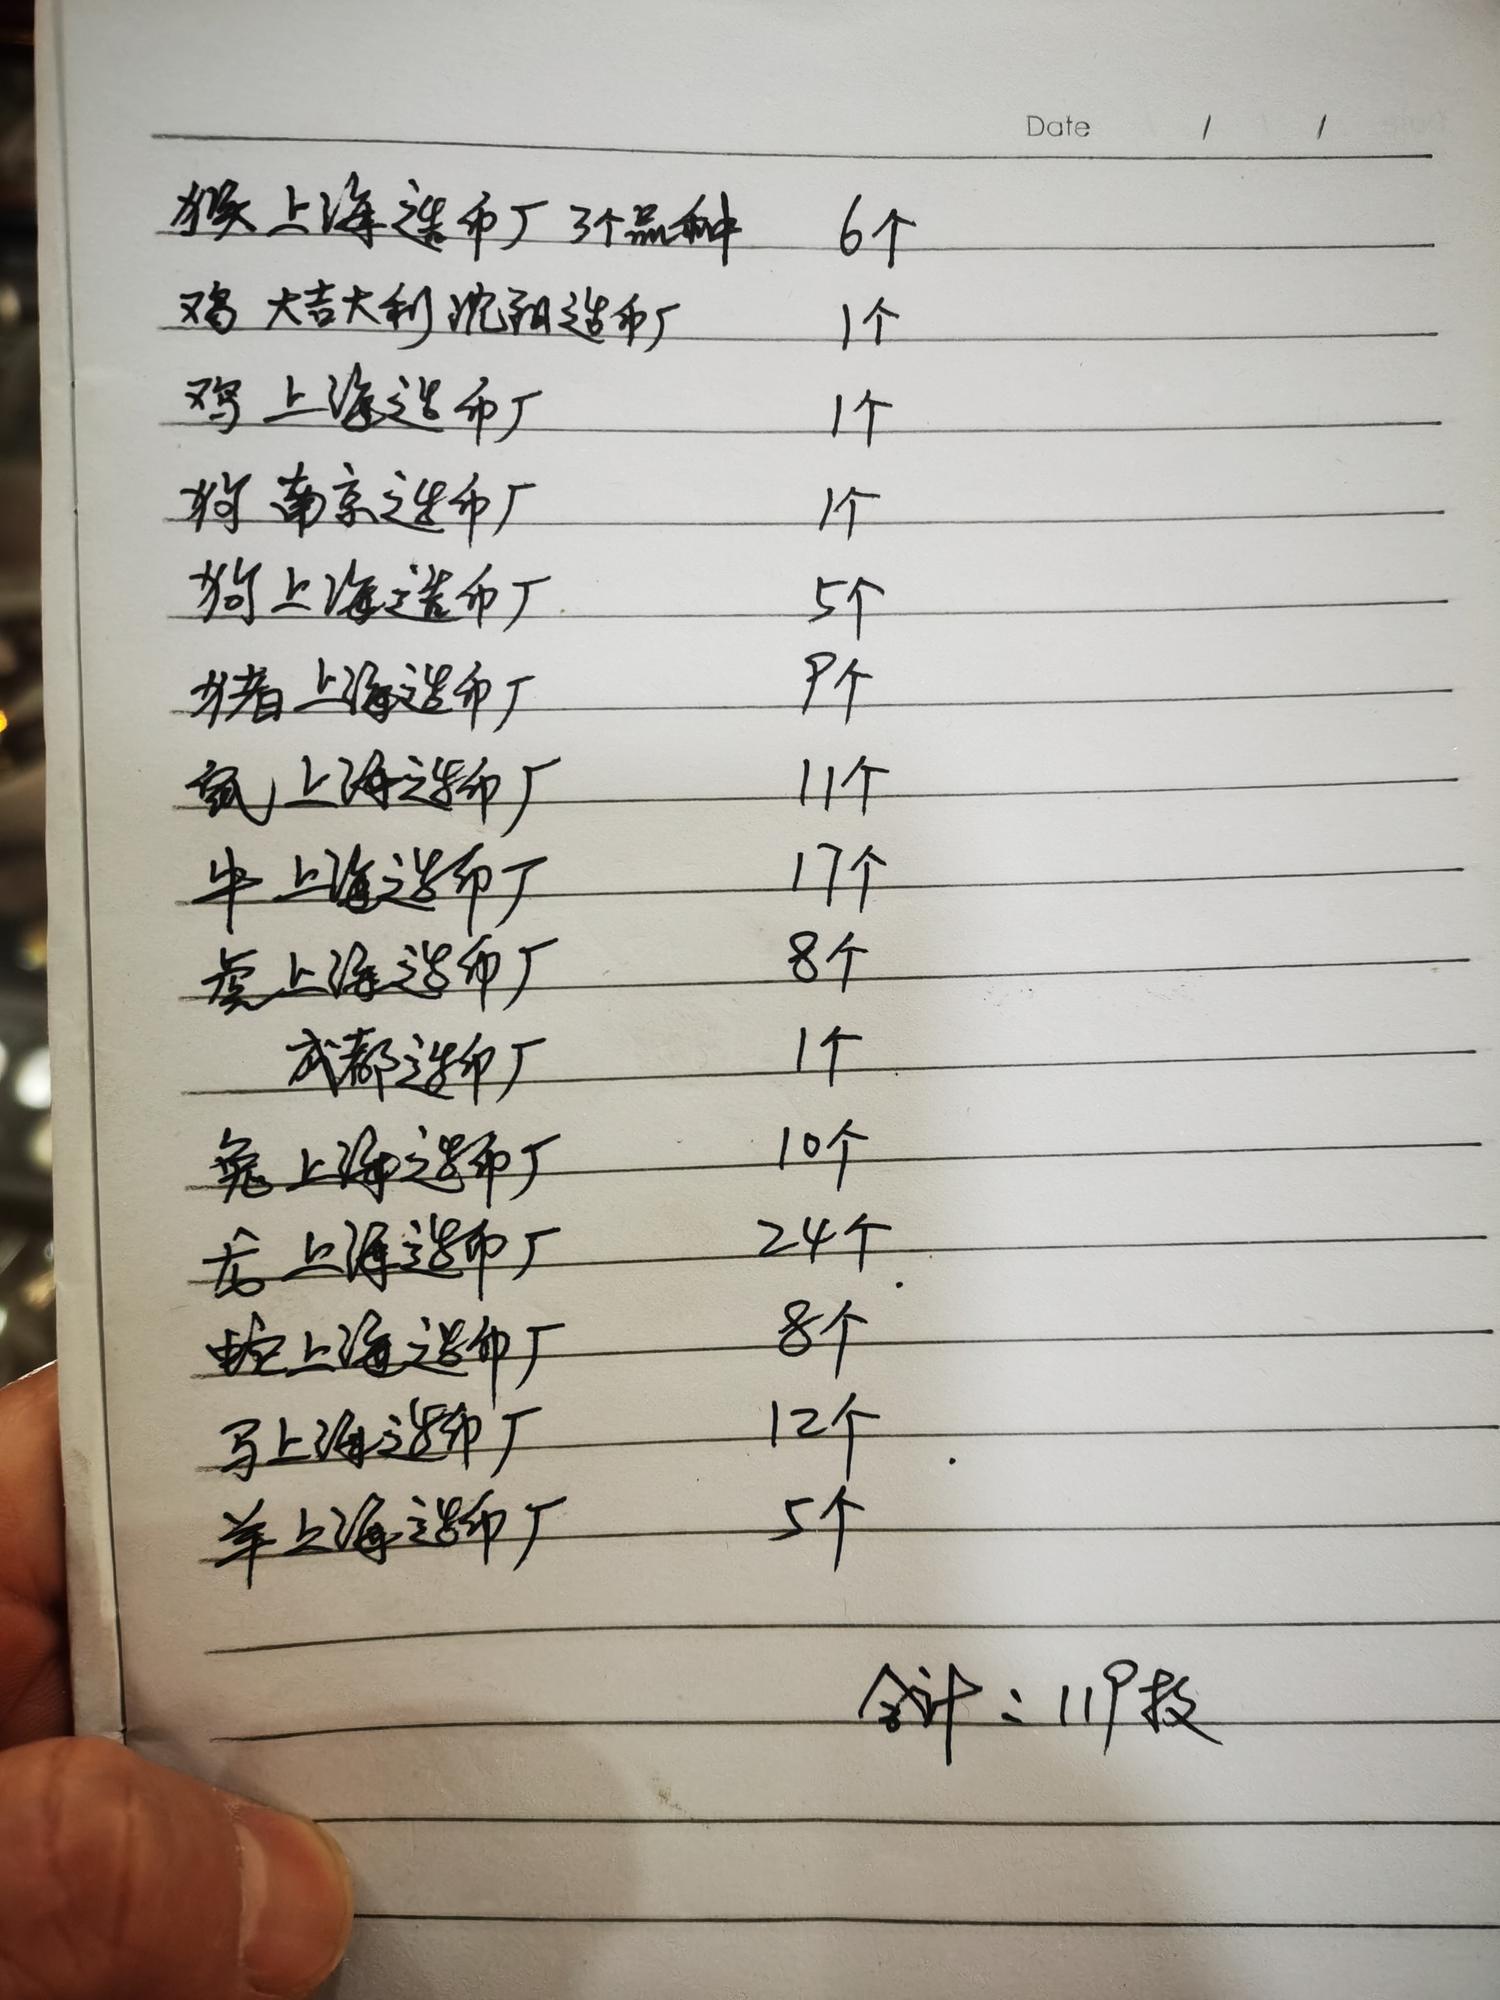 Date / /
猴 上海造币厂 3个品种 6个
鸡 大吉大利 沈阳造币厂 1个
鸡 上海造币厂 1个
狗 南京造币厂 1个
狗 上海造币厂 5个
猪 上海造币厂 9个
鼠 上海造币厂 11个
牛 上海造币厂 17个
虎 上海造币厂 8个
成都造币厂 1个
兔 上海造币厂 10个
龙 上海造币厂 24个
蛇 上海造币厂 8个
马 上海造币厂 12个
羊 上海造币厂 5个
合计：119枚